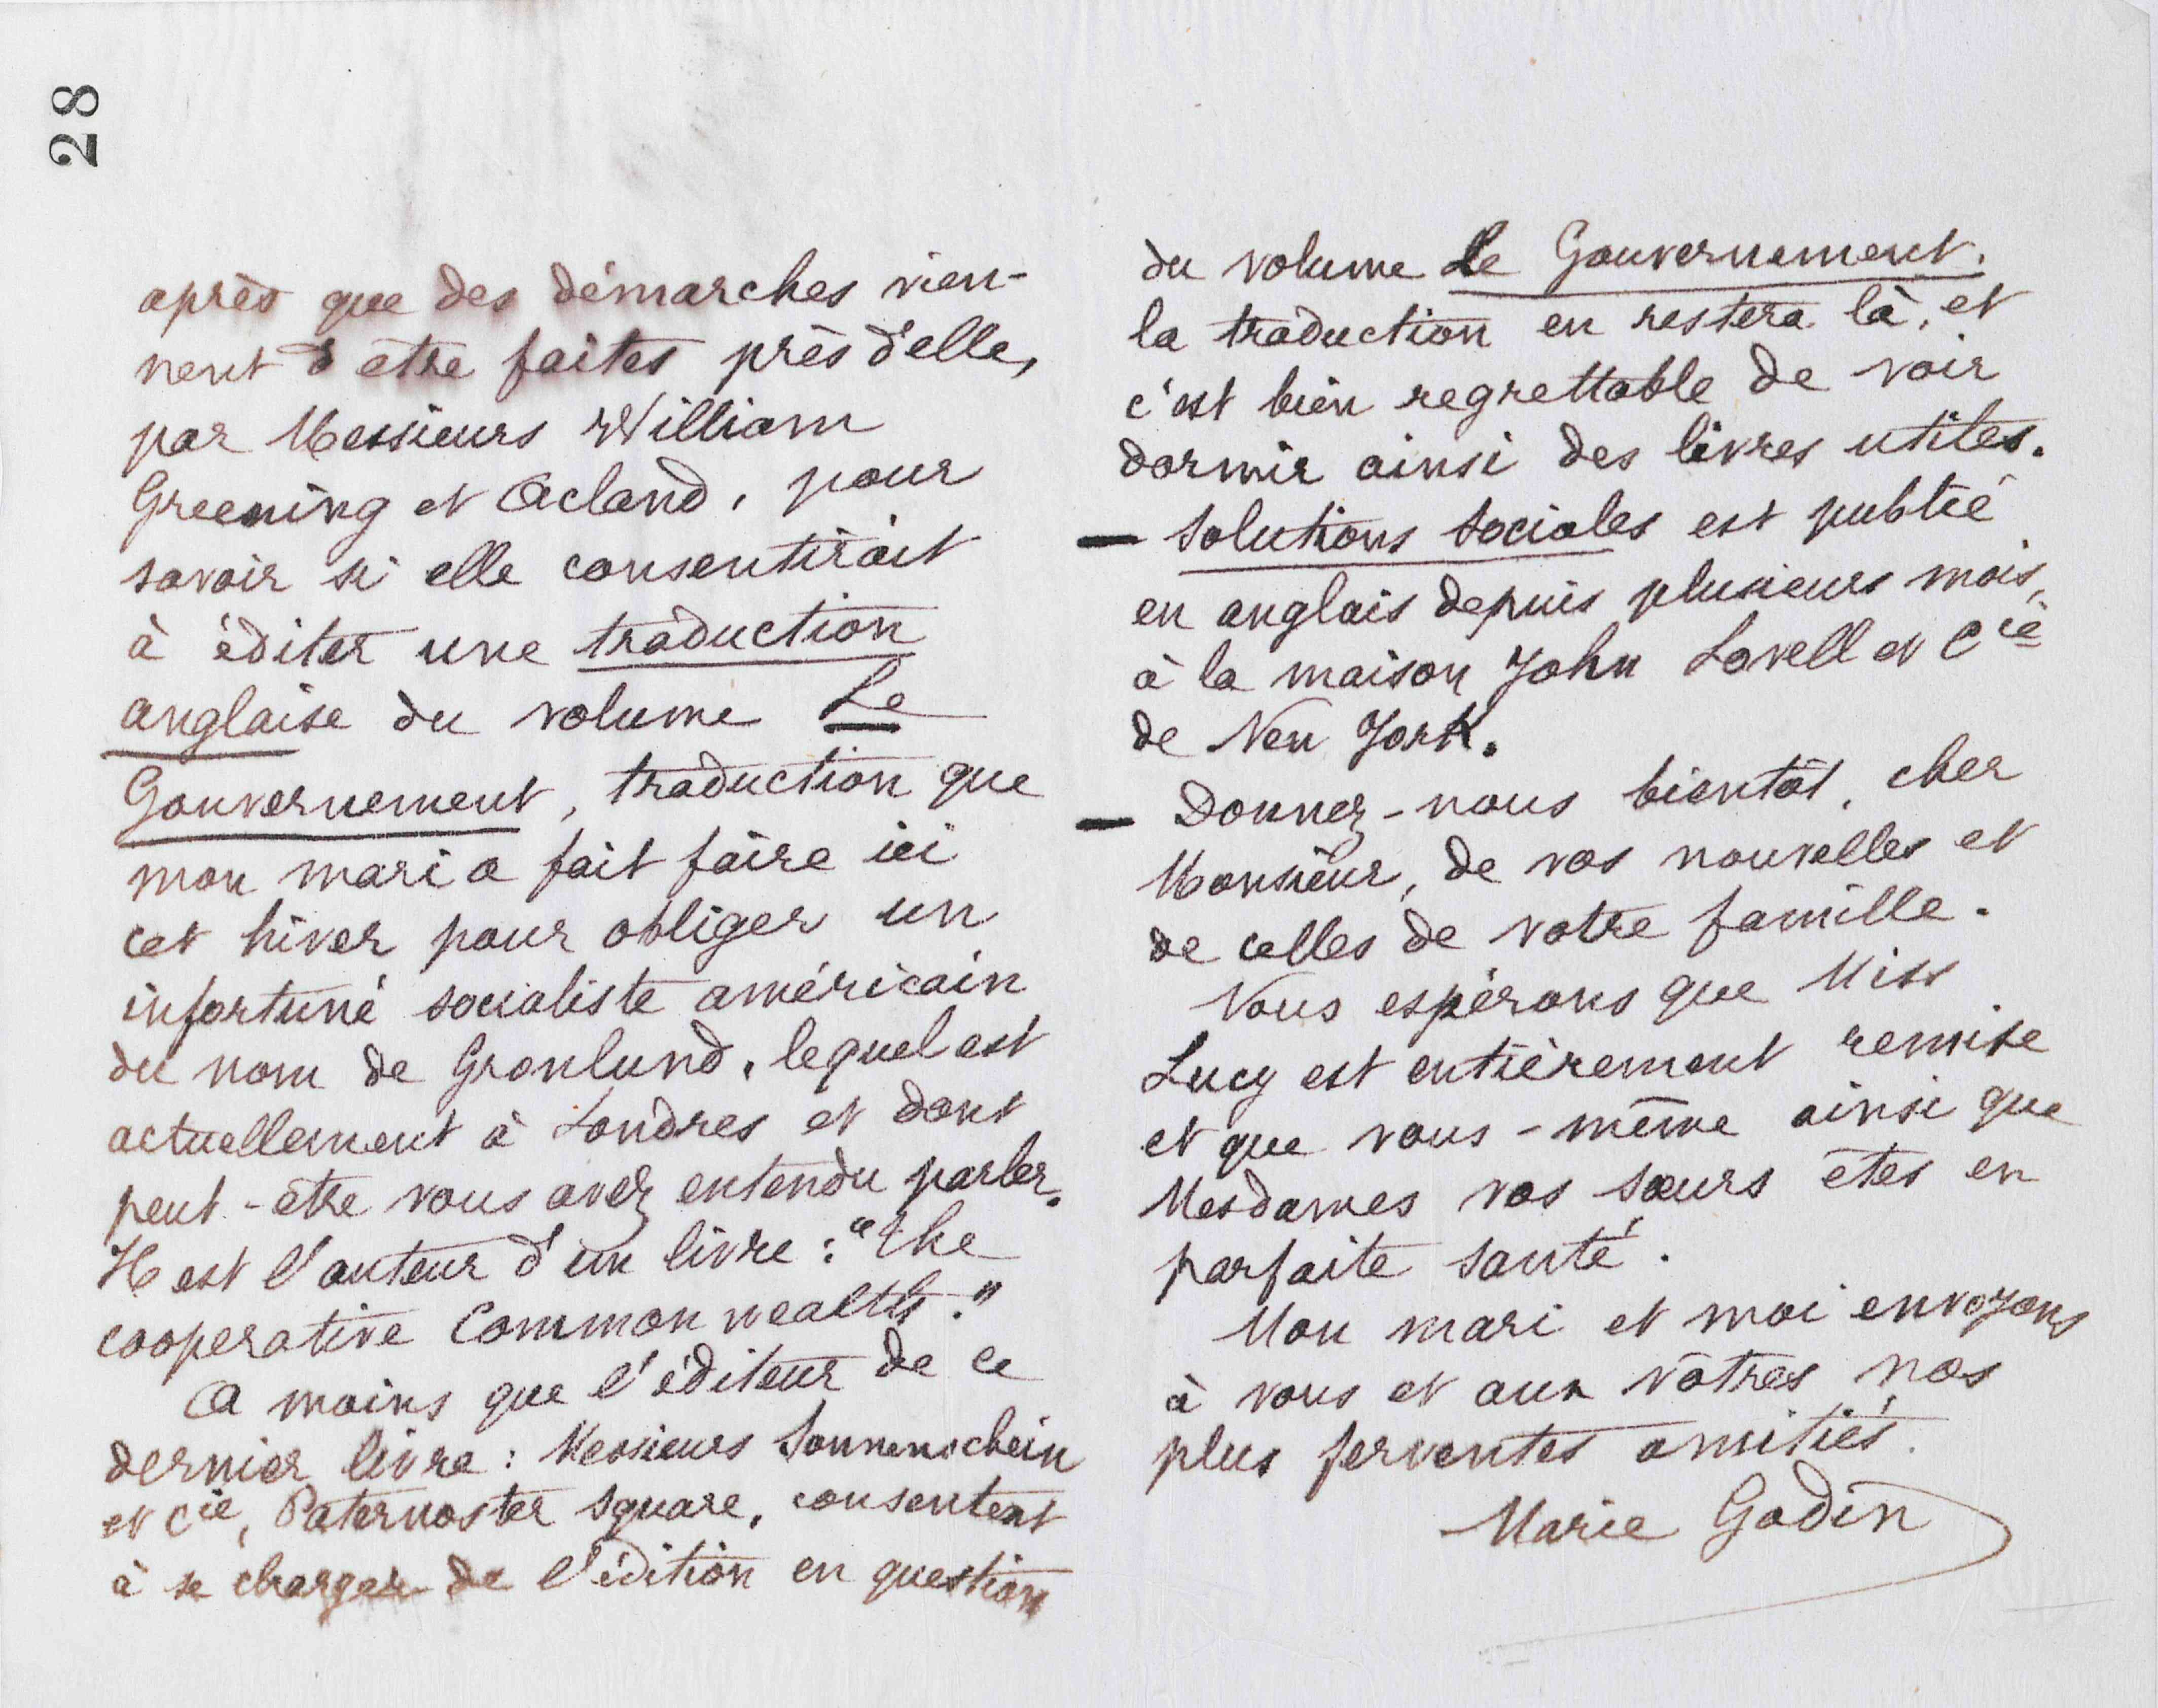 28
après que des démarches vien-
nent d'être faites près d'elle,
par Messieurs William
Greening et Acland, pour
savoir si elle consentirait
à éditer une traduction
anglaise du volume Le
Gouvernement, traduction que
mon mari a fait faire ici
cet hiver pour obliger un
infortuné socialiste américain
du nom de Gronlund, lequel est
actuellement à Londres et dont
peut-être vous avez entendu parler.
Il est l'auteur d'un livre : "The
cooperative Commonwealth."
A moins que l'éditeur de ce
dernier livre : Messieurs Sonnenschein
et Cie, Paternoster Square, consentent
à se charger de l'édition en question
du volume Le Gouvernement.
la traduction en restera là, et
c'est bien regrettable de voir
dormir ainsi des livres utiles.
— Solutions Sociales est publié
en anglais depuis plusieurs mois,
à la maison John Lovell et Cie
de New York.
— Donnez-nous bientôt, cher
Monsieur, de vos nouvelles et
de celles de votre famille.
Nous espérons que Miss
Lucy est entièrement remise
et que vous-même ainsi que
Mesdames vos sœurs êtes en
parfaite santé.
Mon mari et moi envoyons
à vous et aux vôtres nos
plus ferventes amitiés.
Marie Godin